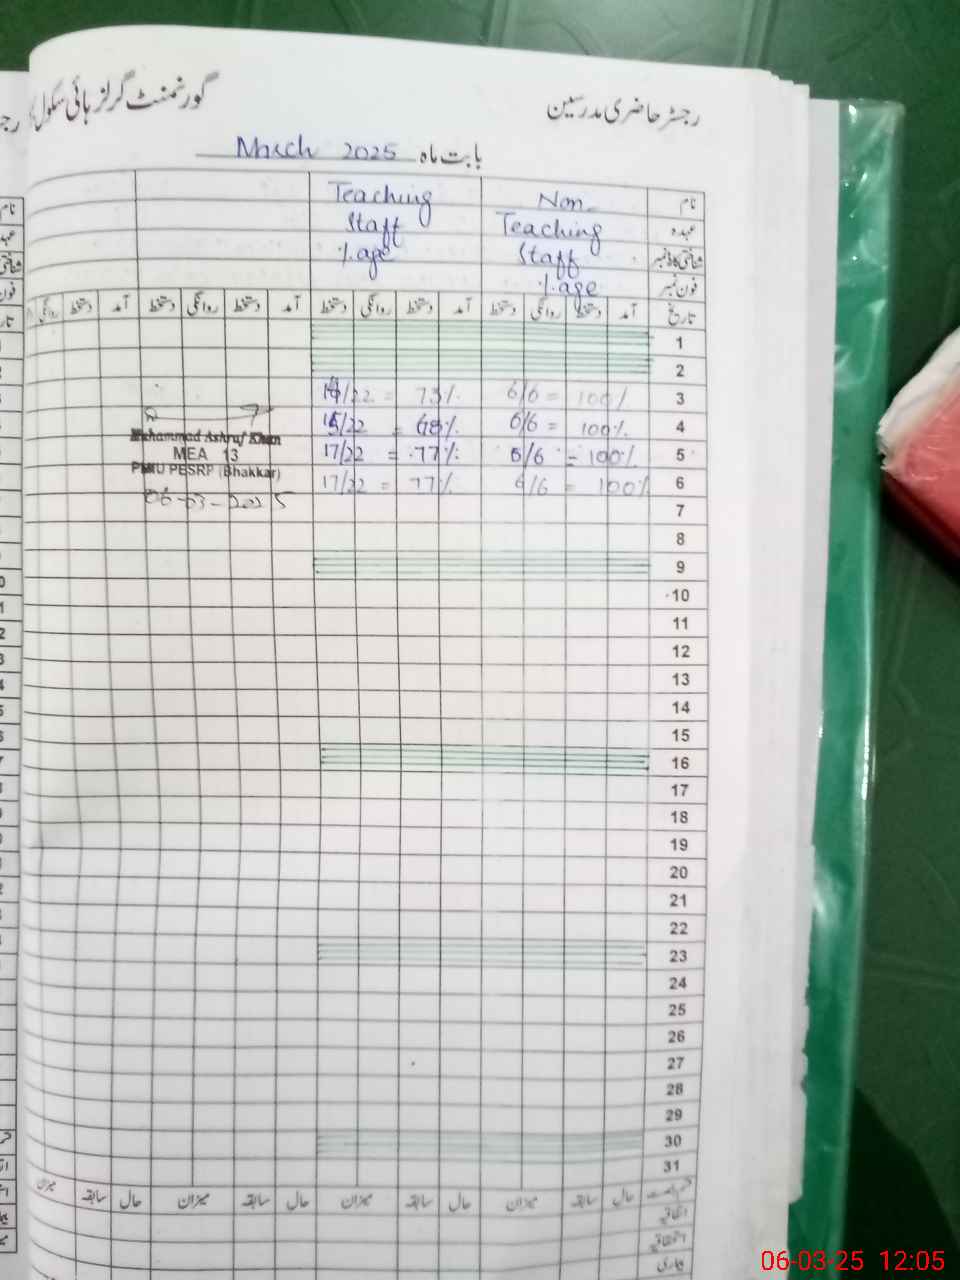 گورنمنٹ گرلز ہائی سکول
رجسٹر حاضری مدرسین
بابت ماہ March 2025
Teaching Staff %age
Non_ Teaching Staff %age
نام
عہدہ
شناختی کارڈ نمبر
فون نمبر
تاریخ آمد دستخط روانگی دستخط آمد دستخط روانگی دستخط آمد دستخط روانگی دستخط آمد دستخط روانگی
1
2
3 6/6 = 100% /22 = 73%
4 6/6 = 100% 15/22 = 68%
5 6/6 = 100% 17/22 = 77%
6 6/6 = 100% 17/22 = 77%
Muhammad Ashraf Khan
MEA 13
PMIU PESRP (Bhakkar)
06-03-2025
7
8
9
10
11
12
13
14
15
16
17
18
19
20
21
22
23
24
25
26
27
28
29
30
31
حال سابقہ میزان حال سابقہ میزان حال سابقہ میزان حال سابقہ میزان
اتفاقیہ
استحقاقیہ
بیماری
06-03-25 12:05